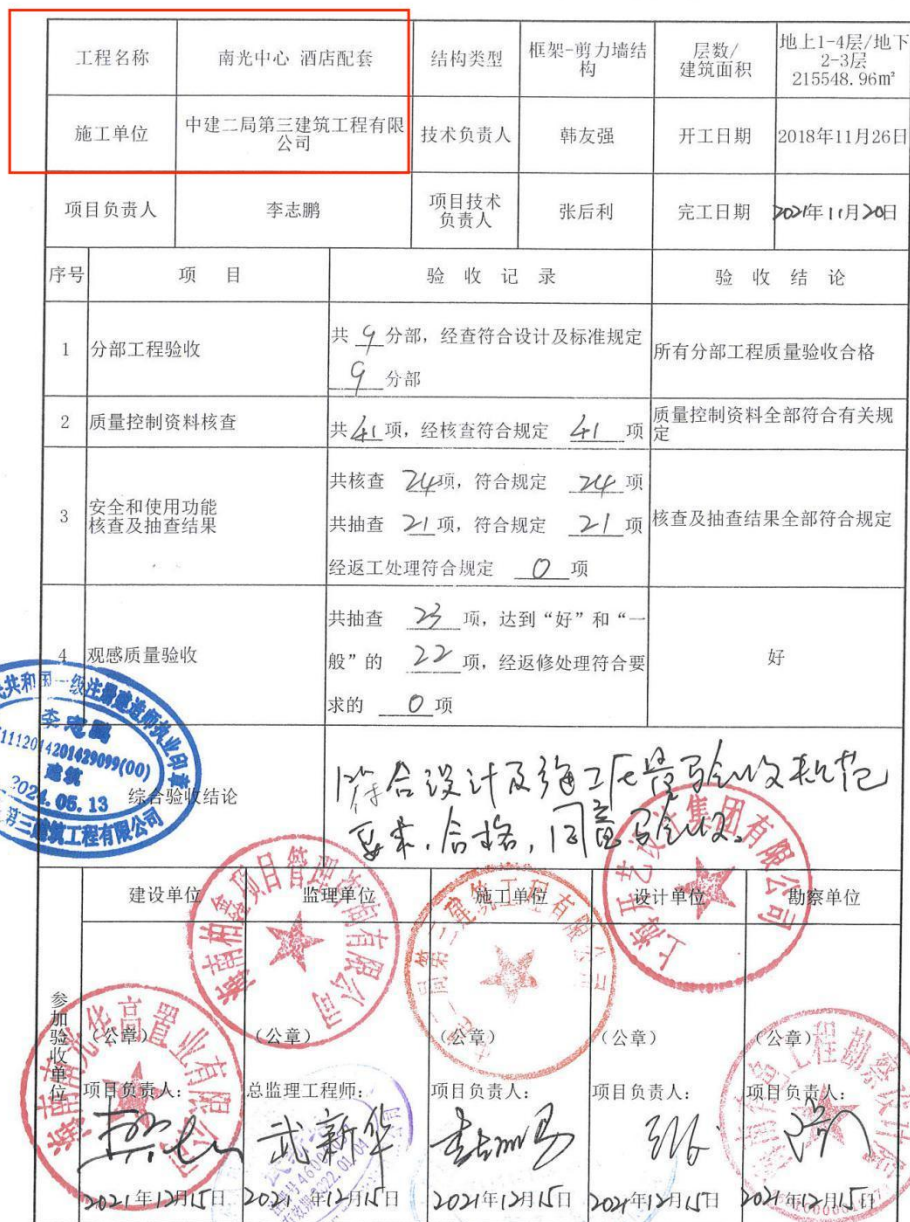 工程名称
南光中心 酒店配套
结构类型
框架-剪力墙结
构
层数/
建筑面积
地上1-4层/地下
2-3层
215548.96m²
施工单位
中建二局第三建筑工程有限
公司
技术负责人
韩友强
开工日期
2018年11月26日
项目负责人
李志鹏
项目技术
负责人
张后利
完工日期
2021年11月20日
序号
项 目
验 收 记 录
验 收 结 论
1
分部工程验收
共 9 分部，经查符合设计及标准规定
9 分部
所有分部工程质量验收合格
2
质量控制资料核查
共41项，经核查符合规定 41 项
质量控制资料全部符合有关规
定
3
安全和使用功能
核查及抽查结果
共核查 24项，符合规定 24 项
共抽查 21 项，符合规定 21 项
经返工处理符合规定 0 项
核查及抽查结果全部符合规定
4
观感质量验收
共抽查 23 项，达到“好”和“一
般”的 22 项，经返修处理符合要
求的 0 项
好
共和国一级注册建造师执业印章
李志鹏
1112014201429099(00)
建筑
2024.05.13
第三建筑工程有限公司
综合验收结论
符合设计及施工质量验收规范
要求，合格，同意验收。
参加验收单位
建设单位
监理单位
施工单位
设计单位
勘察单位
(公章)
(公章)
(公章)
(公章)
(公章)
项目负责人：
总监理工程师：
项目负责人：
项目负责人：
项目负责人：
武新华
李志鹏
2021年12月15日
2021年12月15日
2021年12月15日
2021年12月15日
2021年12月15日